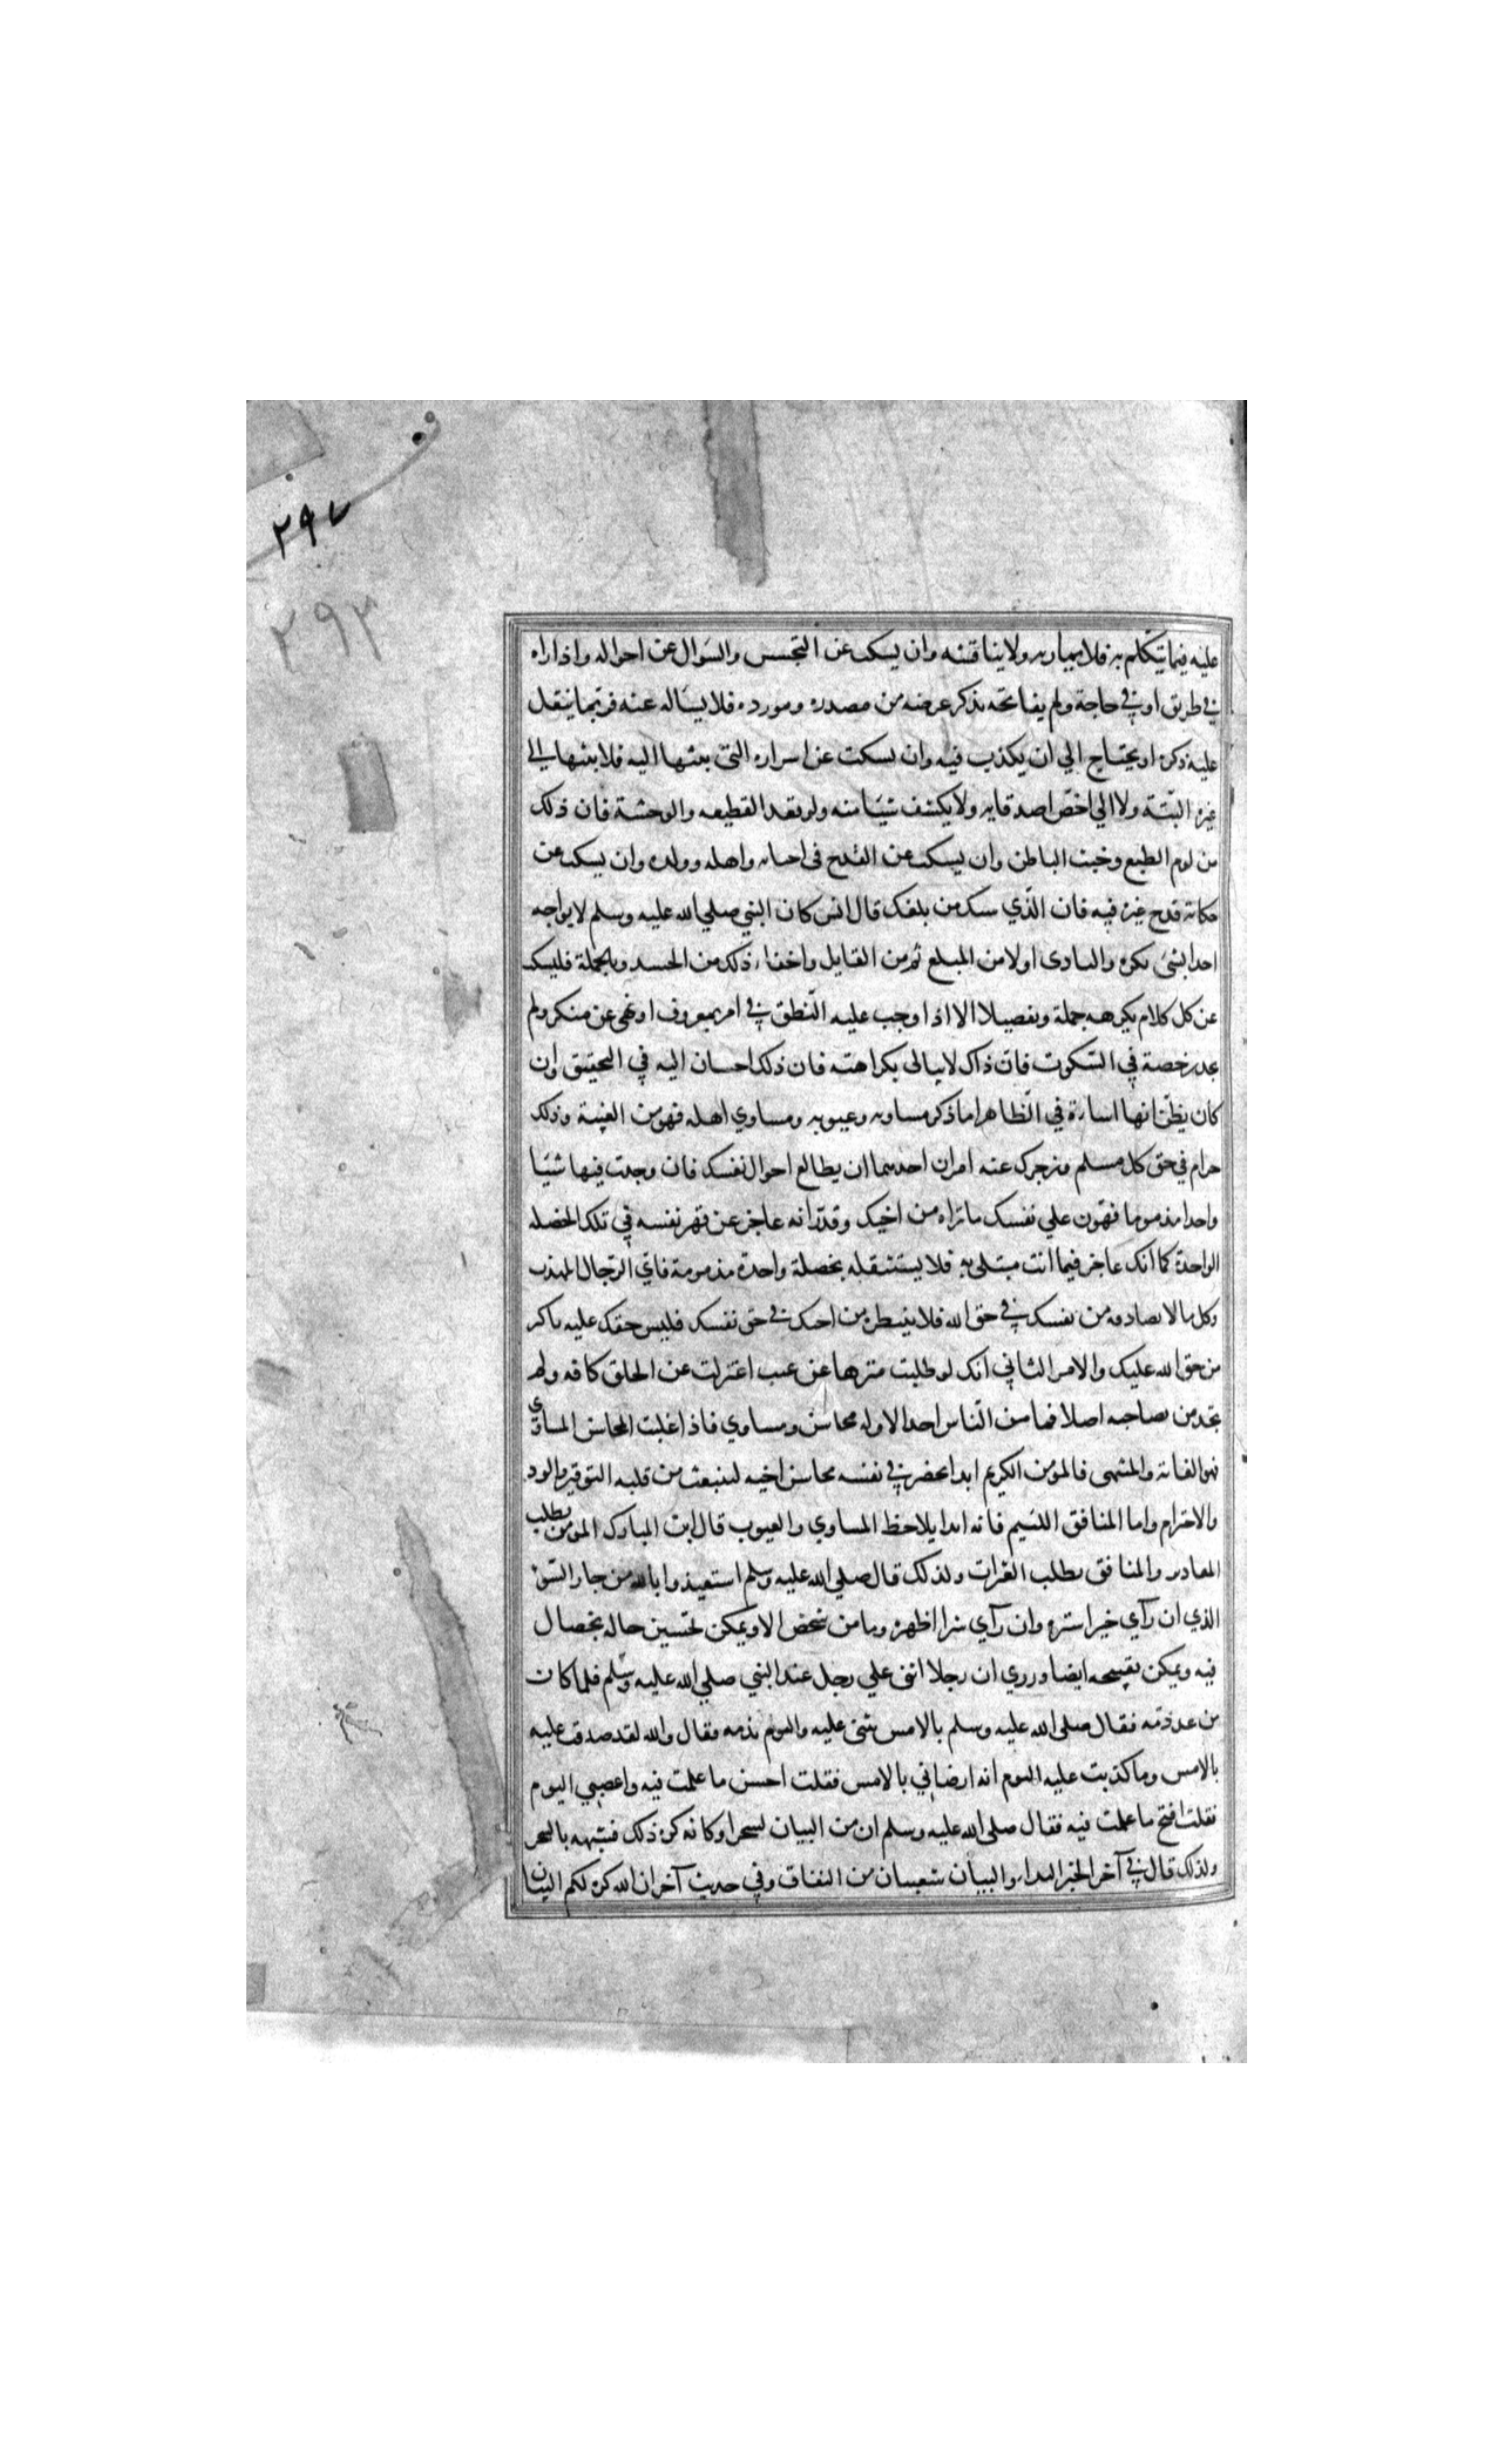 ٢٩٧
٢٩٣
عليه فيما يتكلم به فلا يماريه ولا يناقشه وان يسكت عن التجسس والسؤال عن احواله واذا راه
في طريق او في حاجة ولم يفاتحه بذكر غرضه من مصدره ومورده فلا يساله عنه فربما يثقل
عليه ذكره او يحتاج الي ان يكذب فيه وان يسكت عن اسراره التي بثها اليه فلا يبثها الي
غيره البتة ولا الي اخص اصدقايه ولا يكشف شيا منه ولو بعد القطيعه والوحشة فان ذلك
من لوم الطبع وخبث الباطن وان يسكت عن القدح في احبابه واهله وولده وان يسكت عن
حكاية قدح غيره فيه فان الذي سبك من بلغك قال انس كان النبي صلي الله عليه وسلم لا يواجه
احدا بشئ يكره والتاذي اولا من المبلغ ثم من القايل واخفاء ذلك من الحسد وبالجملة فليسكت
عن كل كلام يكرهه جملة وتفصيلا الا اذا وجب عليه النطق في امر بمعروف او نهي عن منكر ولم
يجد رخصة في السكوت فان ذاك لا يبالي بكراهته فان ذلك احسان اليه في التحقيق وان
كان يظن انها اساءة في الظاهر اما ذكر مساويه وعيوبه ومساوي اهله فهو من الغيبة وذلك
حرام في حق كل مسلم ويزجرك عنه امران احدهما ان يطالع احوال نفسك فان وجدت فيها شيا
واحدا مذموما فهون علي نفسك ما تراه من اخيك وقدر انه عاجز عن قهر نفسه في تلك الخصله
الواحدة كما انك عاجز فيما انت مبتلي به فلا يستثقله بخصلة واحدة مذمومة فاي الرجال المهذب
وكل ما لا تصادفه من نفسك في حق الله فلا ينتظره من اخيك في حق نفسك فليس حقك عليه باكثر
من حق الله عليك والامر الثاني انك لو طلبت منزها عن عيب اعتزلت عن الخلق كافه ولم
تجد من تصاحبه اصلا فما من الناس احد الا وله محاسن ومساوي فاذا غلبت المحاسن المساوي
فهو الغاية والمنتهي فالمومن الكريم ابدا يحضر في نفسه محاسن اخيه لينبعث من قلبه التوقير والود
والاحترام واما المنافق اللئيم فانه ابدا يلاحظ المساوي والعيوب قال ابن المبارك المومن يطلب
المعاذير والمنافق يطلب العثرات ولذلك قال صلي الله عليه وسلم استعيذوا بالله من جار السوء
الذي ان رآي خيرا ستره وان رآي شرا اظهره وما من شخص الا ويمكن تحسين حاله بخصال
فيه ويمكن تقبيحه ايضا وروي ان رجلا اثني علي رجل عند النبي صلي الله عليه وسلم فلما كان
من غد ذمه فقال صلي الله عليه وسلم بالامس تثني عليه واليوم تذمه فقال والله لقد صدقت عليه
بالامس وما كذبت عليه اليوم انه ارضاني بالامس فقلت احسن ما علمت فيه واغضبني اليوم
فقلت اقبح ما علمت فيه فقال صلي الله عليه وسلم ان من البيان لسحرا وكانه كره ذلك فشبهه بالسحر
ولذلك قال في آخر الخبر البذاء والبيان شعبتان من النفاق وفي حديث آخر ان الله كره لكم البيان